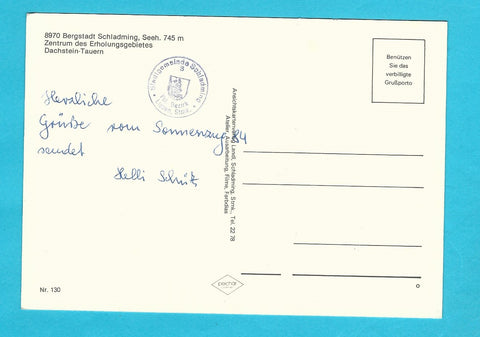 8970 Bergstadt Schladming, Seeh. 745 m
Zentrum des Erholungsgebietes
Dachstein-Tauern
Stadtgemeinde Schladming
8
Pol. Bezirk
Liezen, Stmk.
Benützen
Sie das
verbilligte
Grußporto
Herzliche
Grüße vom Sonnenzug 84
sendet
Helli Schütz
Ansichtskartenverlag Landl, Schladming, Stmk., Tel. 22 78
Ausarbeitung, Filme, Farbdias
pechar
Nr. 130
o